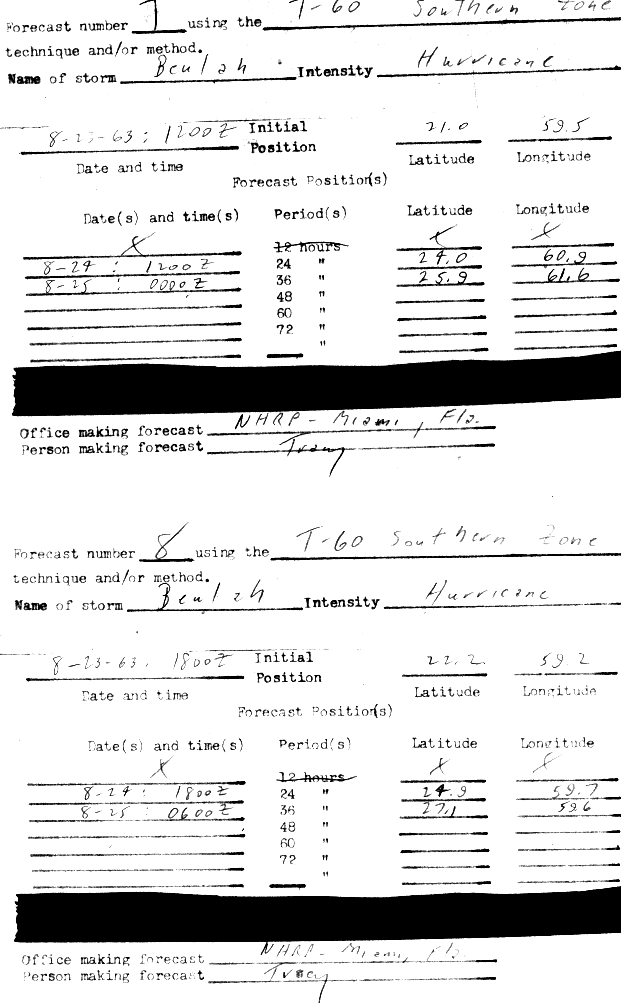 Forecast number 7 using the T-60 Southern Zone
technique and/or method.
Name of storm Beulah Intensity Hurricane
8-23-63: 1200Z Initial Position 21.0 59.5
Date and time Latitude Longitude
Forecast Position(s)
Date(s) and time(s) Period(s) Latitude Longitude
X 12 hours X X
8-24 : 1200Z 24 " 24.0 60.9
8-25 : 0000Z 36 " 25.9 61.6
48 "
60 "
72 "
"
Office making forecast NHRP - Miami, Fla.
Person making forecast Tracy
Forecast number 8 using the T-60 Southern Zone
technique and/or method.
Name of storm Beulah Intensity Hurricane
8-23-63: 1800Z Initial Position 22.2 59.2
Date and time Latitude Longitude
Forecast Position(s)
Date(s) and time(s) Period(s) Latitude Longitude
X 12 hours X X
8-24 : 1800Z 24 " 24.9 59.7
8-25 : 0600Z 36 " 27.1 59.6
48 "
60 "
72 "
"
Office making forecast NHRP - Miami, Fla
Person making forecast Tracy